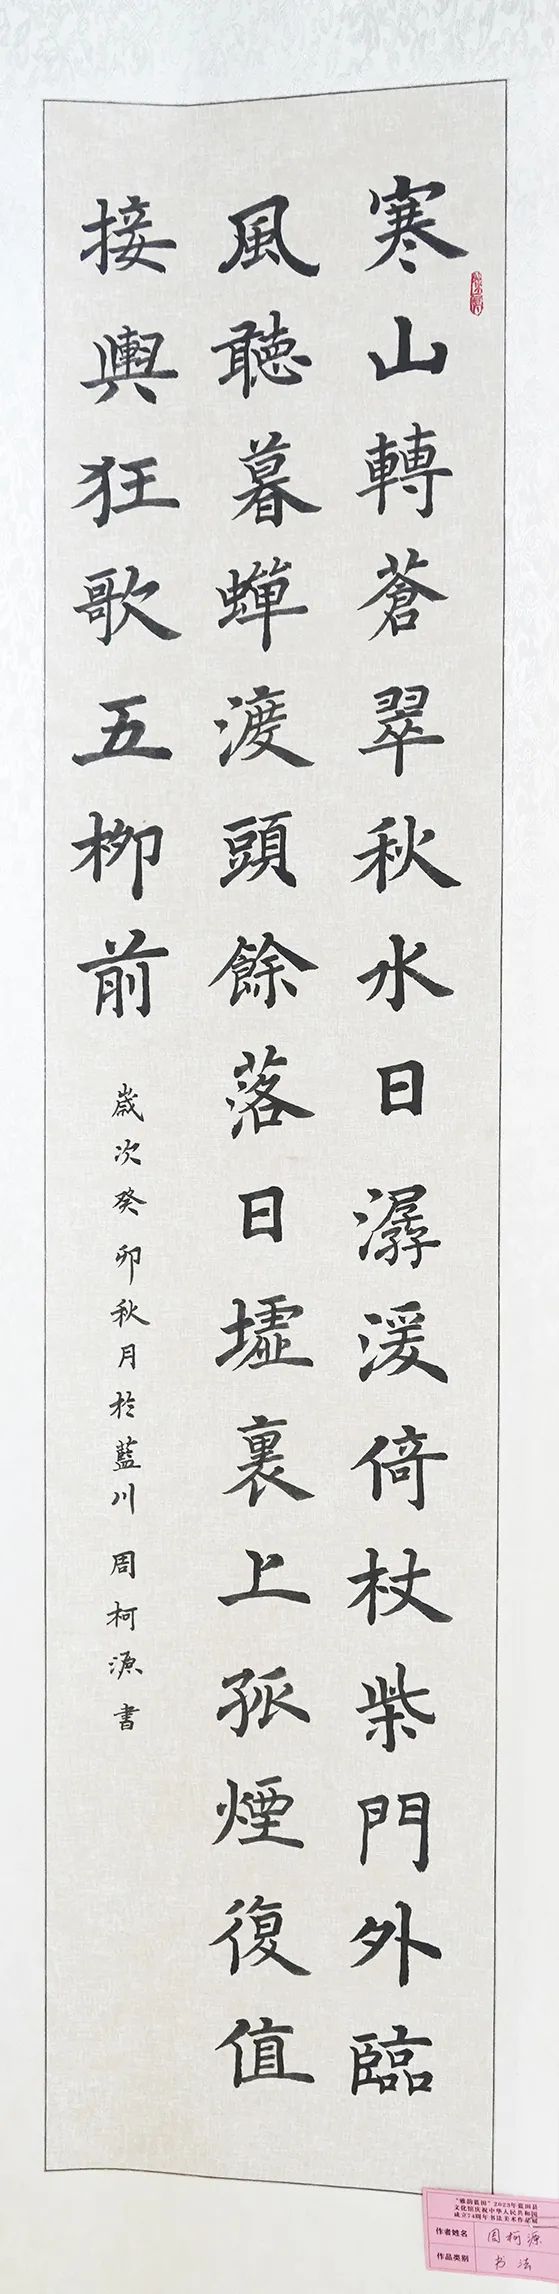 寒山轉蒼翠秋水日潺湲倚杖柴門外臨
風聽暮蟬渡頭餘落日墟裏上孤煙復值
接輿狂歌五柳前
歲次癸卯秋月於藍川 周柯源書
"雅韵蓝田"2023年蓝田县
文化馆庆祝中华人民共和国
成立74周年书法美术作品展
作者姓名 周柯源
作品类别 书法